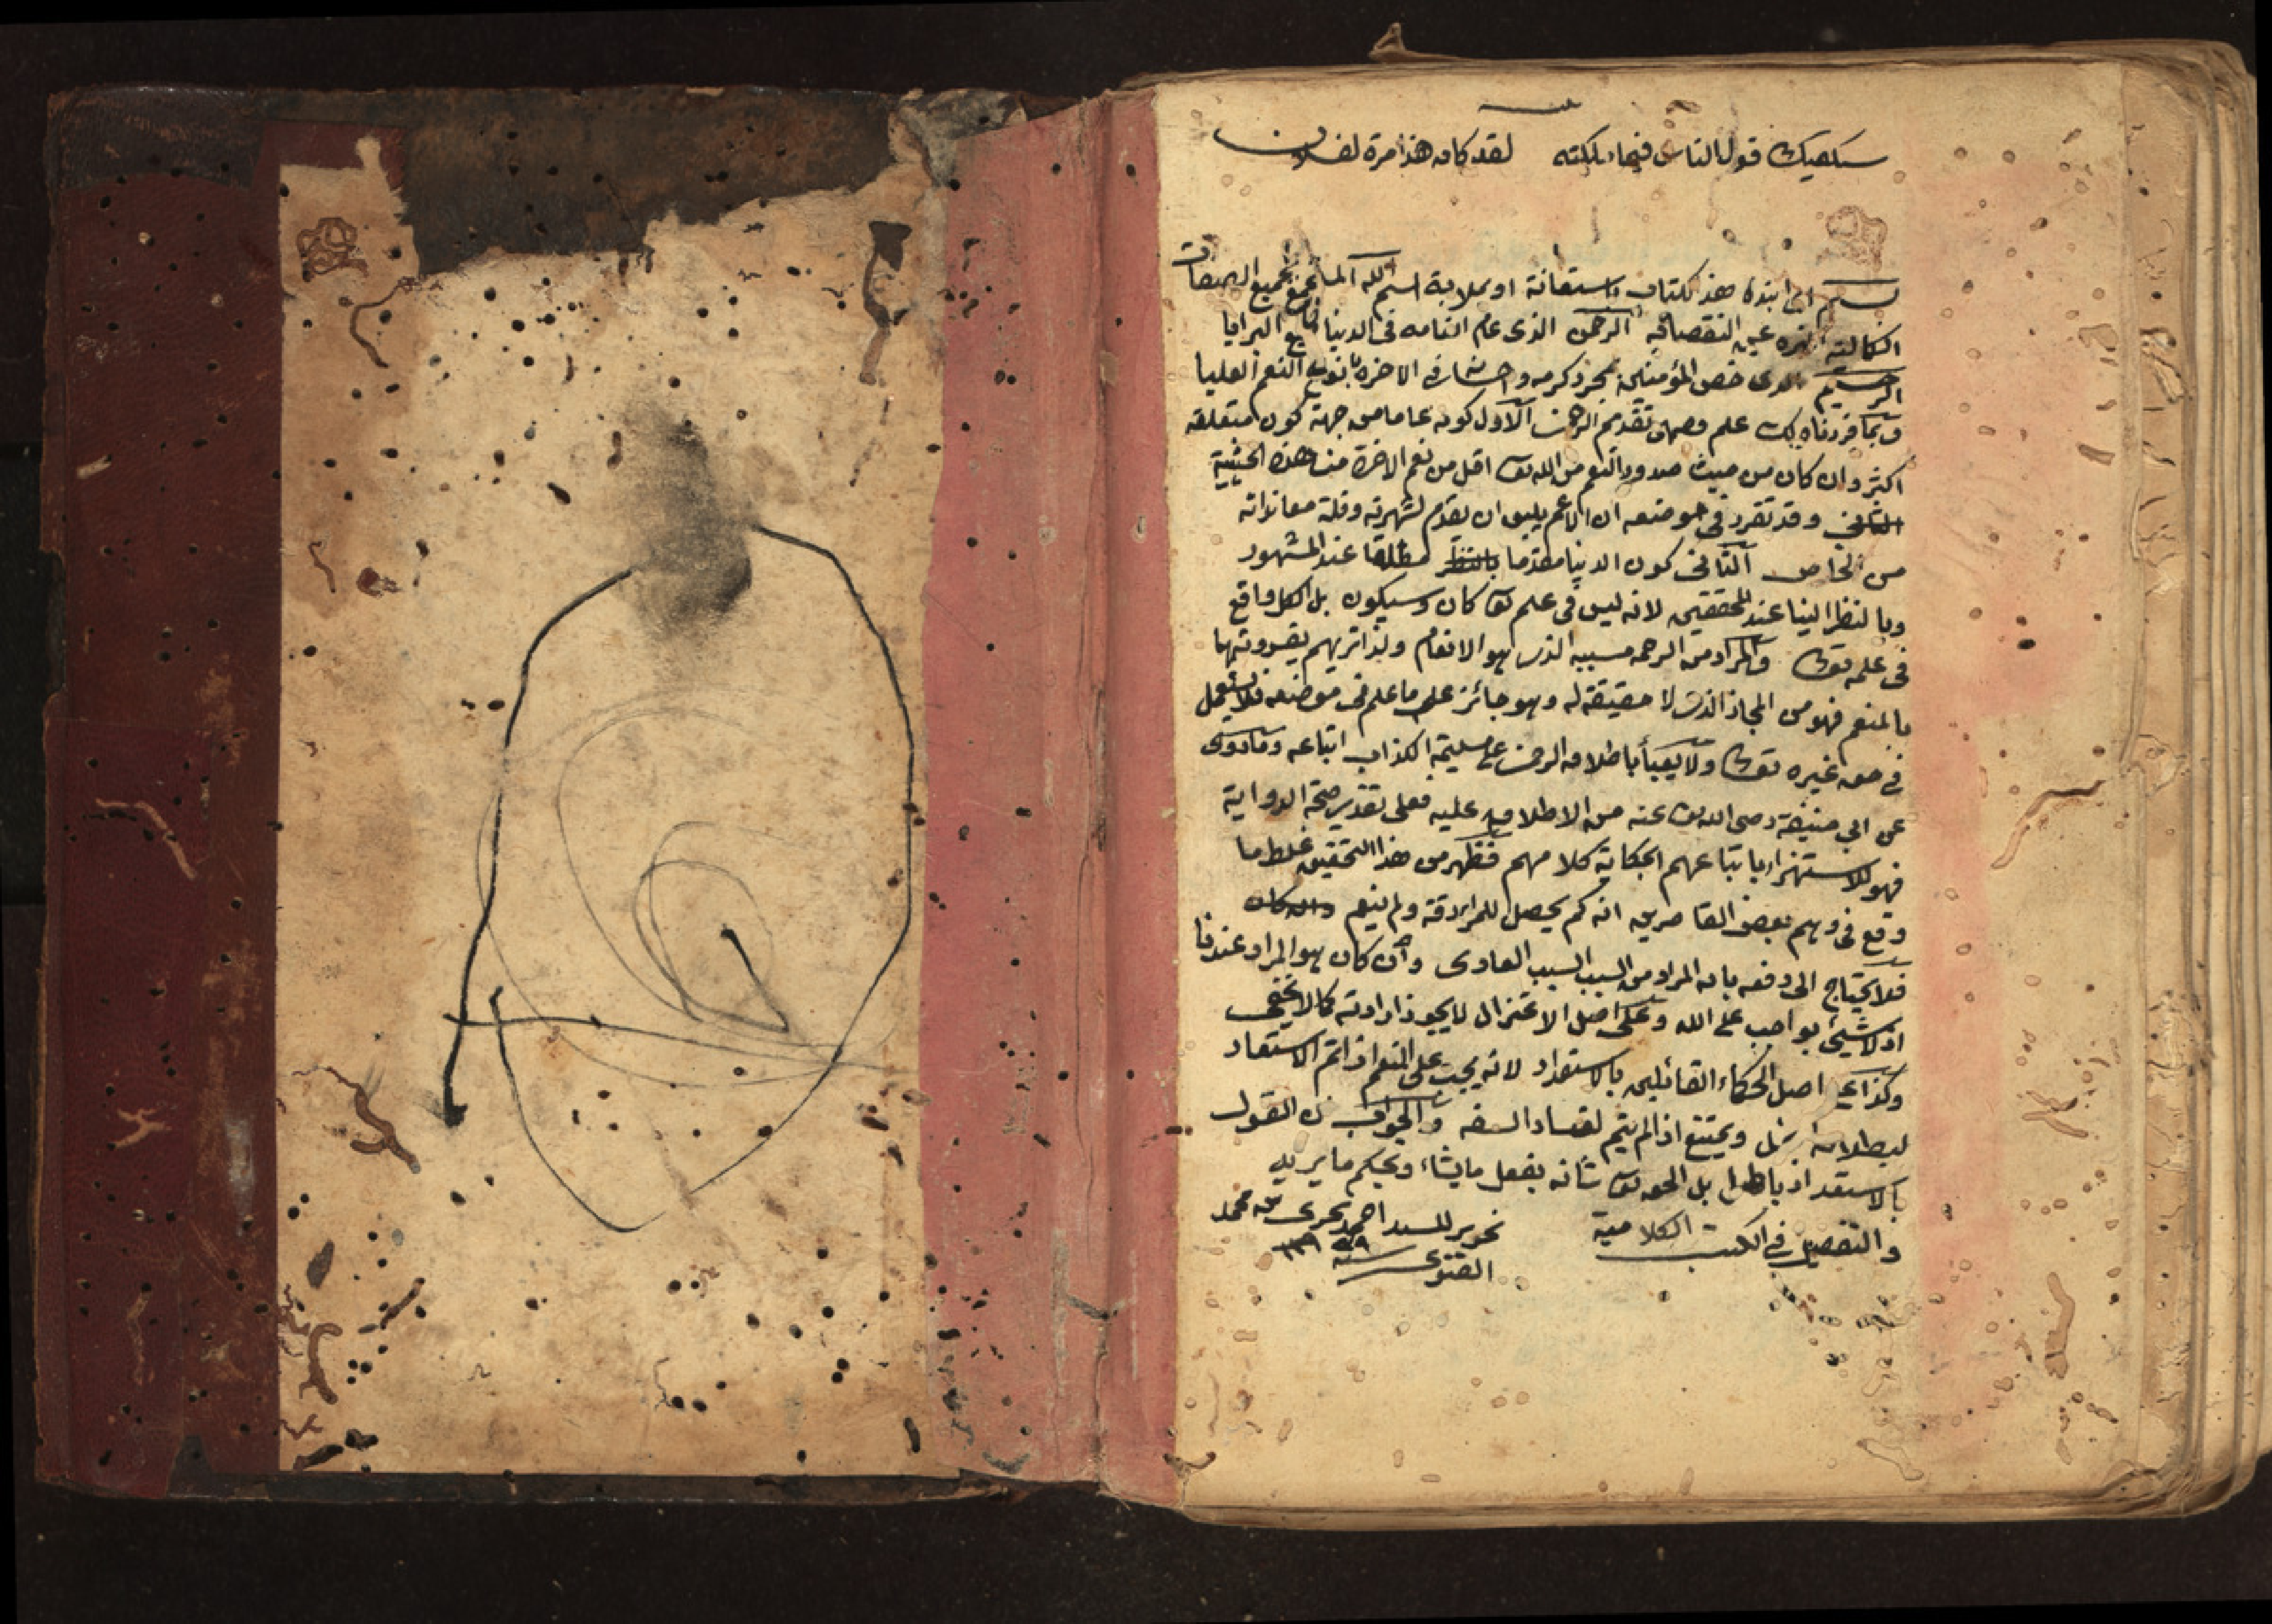 بيت
سيكفيك قول الناس فيما ملكته لقد كان هذا مرة لفلان
بسم اي ابتدء هذ الكتاب باستعانة او بملابسة اسم الله الجامع بجميع الصفات
الكمالية المنزه عن النقصان الرحمن الذى عام انعامه فى الدنيا لجميع البرايا
الرحيم الذى خص المؤمنين بمجرد كرمه واحسانه فى الاخرة بانواع النعم العليا
وبما قررناه لك علم وجهان تقديم الرحمن الاول كونه عاما من جهة كون متعلقه
اكثر وان كان من حيث صدور النعم من الله تعا اقل من نعم الاخرة من هذه الحيثية
وقد تقرر فى موضعه ان الاعم يليق ان يقدم لشهرته وقلة معانداته
من الخاص الثانى كون الدنيا مقدما مطلقا عند المشهور
وبالنظر الينا عند المحققين لانه ليس فى علم تعا كان وسيكون بل الكل واقع
فى علمه تعا والمراد من الرحمه مسببه الذى هو الانعام ولذا تريهم يفسرونها
بالمنعم فهو من المجاز الذى لا حقيقة له وهو جائز على ما علم فى موضعه فلا يستعمل
فى حق غيره تعا ولا يعبأ باطلاق الرحمن على مسيلمة الكذاب اتباعه وما روى
عن ابى حنيفة رضى الله تعا عنه من الاطلاق عليه فعلى تقدير صحة الرواية
فهو للاستهزاء باتباعهم لحكاية كلامهم فظهر من هذا التحقيق غلط ما
وقع فى وهم بعض القاصرين انه كم يحصل للمرء رقة ولم ينعم
فلا يحتاج الى دفعه بان المراد من السبب السبب العادى وان كان هو المراد عندنا
اذ لا شيئ بواجب على الله وعلى اصل الاعتزال لا يجوز ارادته كما لا يخفى
وكذا على اصل الحكماء القائلين بالاستعداد لانه يجب على المنعم اذا تم الاستعداد
ويمتنع اذا لم يتم لفساد والجواب ان القول
بالاستعداد باطل بل الحق تعا شانه يفعل ما يشاء ويحكم ما يريد
والتفصيل فى الكتب الكلامية
تحرير للسيد احمد بن محمد
سنة